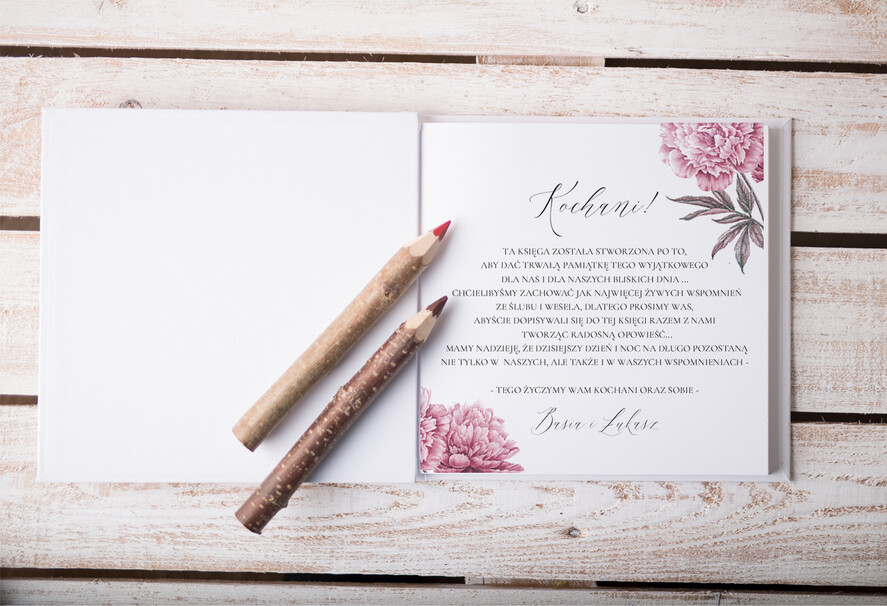 Kochani!
TA KSIĘGA ZOSTAŁA STWORZONA PO TO,
ABY DAĆ TRWAŁĄ PAMIĄTKĘ TEGO WYJĄTKOWEGO
DLA NAS I DLA NASZYCH BLISKICH DNIA ...
CHCIELIBYŚMY ZACHOWAĆ JAK NAJWIĘCEJ ŻYWYCH WSPOMNIEŃ
ZE ŚLUBU I WESELA, DLATEGO PROSIMY WAS,
ABYŚCIE DOPISYWALI SIĘ DO TEJ KSIĘGI RAZEM Z NAMI
TWORZĄC RADOSNĄ OPOWIEŚĆ...
MAMY NADZIEJĘ, ŻE DZISIEJSZY DZIEŃ I NOC NA DŁUGO POZOSTANĄ
NIE TYLKO W NASZYCH, ALE TAKŻE I W WASZYCH WSPOMNIENIACH -
- TEGO ŻYCZYMY WAM KOCHANI ORAZ SOBIE -
Basia i Łukasz